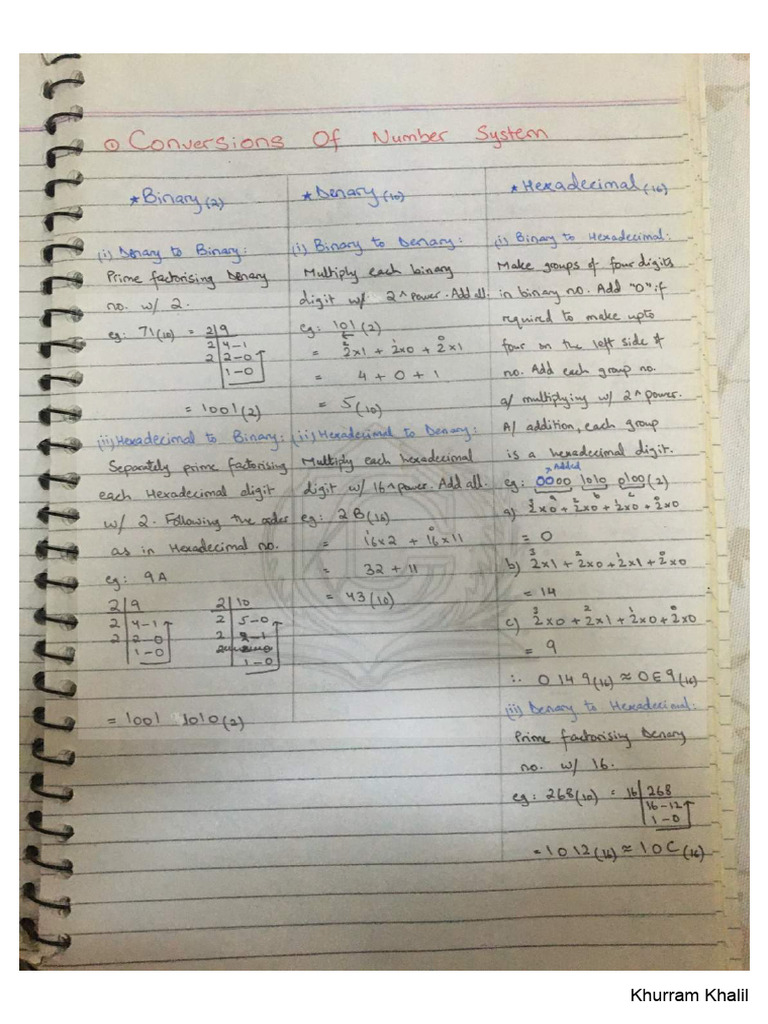 ① Conversions Of Number System
* Binary (2)
(i) Denary to Binary:
Prime factorising Denary
no. w/ 2.
eg: 71(10) = 2|9
2|4-1
2|2-0
|1-0
= 1001(2)
(ii) Hexadecimal to Binary:
Separately prime factorising
each Hexadecimal digit
w/ 2. Following the order
as in Hexadecimal no.
eg: 9A
2|9 2|10
2|4-1 2|5-0
2|2-0 2|2-1
|1-0
|1-0
= 1001 1010(2)
* Denary (10)
(i) Binary to Denary:
Multiply each binary
digit w/ 2^power. Add all.
eg: 101(2)
= 2²x1 + 2¹x0 + 2⁰x1
= 4 + 0 + 1
= 5(10)
(ii) Hexadecimal to Denary:
Multiply each hexadecimal
digit w/ 16^power. Add all.
eg: 2B(16)
= 16¹x2 + 16⁰x11
= 32 + 11
= 43(10)
* Hexadecimal (16)
(i) Binary to Hexadecimal:
Make groups of four digits
in binary no. Add "0" if
required to make upto
four on the left side of
no. Add each group no.
a/ multiplying w/ 2^power.
A/ addition, each group
is a hexadecimal digit.
Added
eg: 0000 1010 0100(2)
a b c
a) 2³x0 + 2²x0 + 2¹x0 + 2⁰x0
= 0
b) 2³x1 + 2²x0 + 2¹x1 + 2⁰x0
= 14
c) 2³x0 + 2²x1 + 2¹x0 + 2⁰x0
= 9
∴ 0 14 9(16) ≈ 0E9(16)
(ii) Denary to Hexadecimal:
Prime factorising Denary
no. w/ 16.
eg: 268(10) = 16|268
|16-12
|1-0
= 1012(16) ≈ 10C(16)
Khurram Khalil